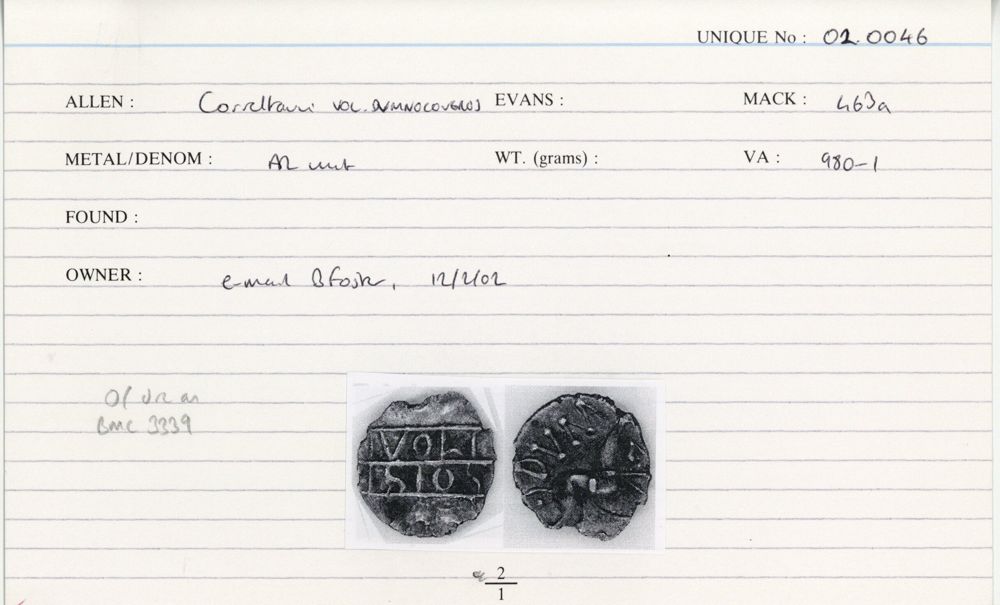 UNIQUE No : 02.0046
ALLEN : Correltauvi VOL. DVMNOCOVEROS EVANS : MACK : 463a
METAL/DENOM : AR unit WT. (grams) : VA : 980-1
FOUND :
OWNER : e-mail B Foster, 12/2/02
O/ dr as
BMC 3339
VOLI
SIOS
DV
2
1